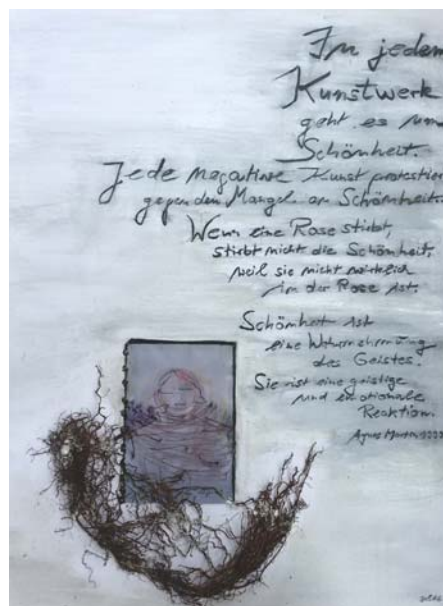 In jedem
Kunstwerk
geht es um
Schönheit.
Jede negative Kunst protestiert
gegen den Mangel an Schönheit.
Wenn eine Rose stirbt,
stirbt nicht die Schönheit,
weil sie nicht wirklich
in der Rose ist.
Schönheit ist
eine Wahrnehmung
des Geistes.
Sie ist eine geistige
und emotionale
Reaktion.
Agnes Martin